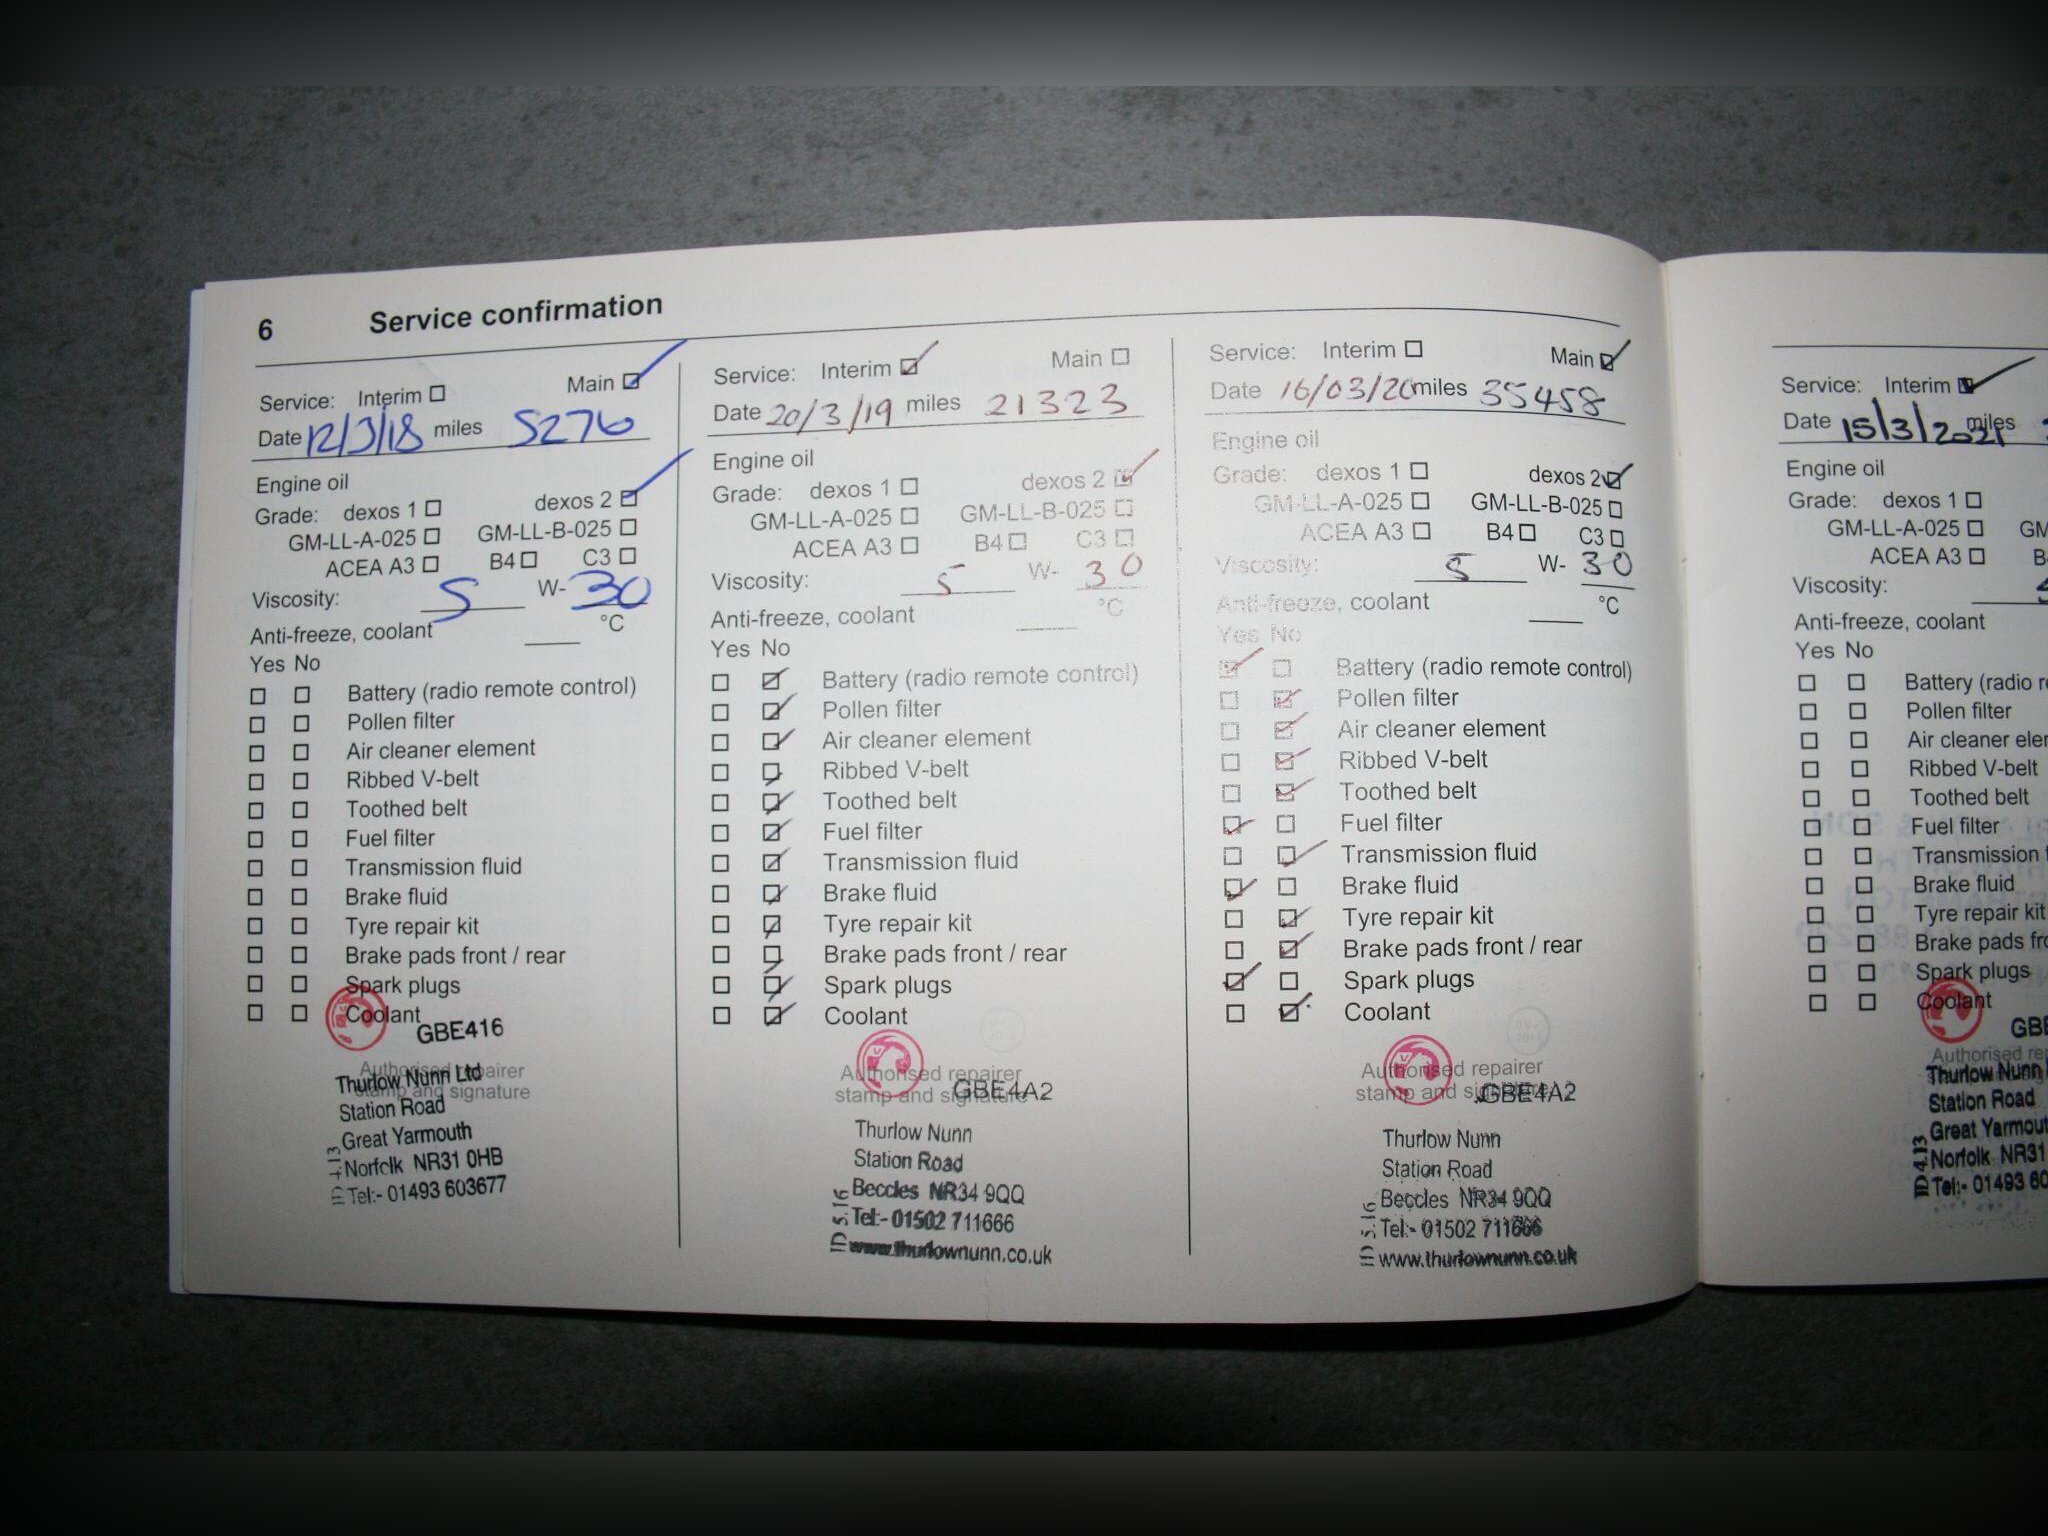 6 Service confirmation
Service: Interim Main
Date 12/3/18 miles 5276
Engine oil
Grade: dexos 1 dexos 2
GM-LL-A-025 GM-LL-B-025
ACEA A3 B4 C3
Viscosity: 5 W- 30
Anti-freeze, coolant °C
Yes No
Battery (radio remote control)
Pollen filter
Air cleaner element
Ribbed V-belt
Toothed belt
Fuel filter
Transmission fluid
Brake fluid
Tyre repair kit
Brake pads front / rear
Spark plugs
Coolant
GBE416
Authorised repairer
stamp and signature
Thurlow Nunn Ltd
Station Road
Great Yarmouth
Norfolk NR31 0HB
Tel:- 01493 603677
ID 4.13
Service: Interim Main
Date 20/3/19 miles 21323
Engine oil
Grade: dexos 1 dexos 2
GM-LL-A-025 GM-LL-B-025
ACEA A3 B4 C3
Viscosity: 5 W- 30
Anti-freeze, coolant °C
Yes No
Battery (radio remote control)
Pollen filter
Air cleaner element
Ribbed V-belt
Toothed belt
Fuel filter
Transmission fluid
Brake fluid
Tyre repair kit
Brake pads front / rear
Spark plugs
Coolant
Authorised repairer
stamp and signature
GBE4A2
Thurlow Nunn
Station Road
Beccles NR34 9QQ
Tel:- 01502 711666
www.thurlownunn.co.uk
ID 5.16
Service: Interim Main
Date 16/03/20 miles 35458
Engine oil
Grade: dexos 1 dexos 2
GM-LL-A-025 GM-LL-B-025
ACEA A3 B4 C3
Viscosity: 5 W- 30
Anti-freeze, coolant °C
Yes No
Battery (radio remote control)
Pollen filter
Air cleaner element
Ribbed V-belt
Toothed belt
Fuel filter
Transmission fluid
Brake fluid
Tyre repair kit
Brake pads front / rear
Spark plugs
Coolant
Authorised repairer
stamp and signature
GBE4A2
Thurlow Nunn
Station Road
Beccles NR34 9QQ
Tel:- 01502 711666
www.thurlownunn.co.uk
ID 5.16
Service: Interim
Date 15/3/2021 miles
Engine oil
Grade: dexos 1
GM-LL-A-025 GM
ACEA A3 B
Viscosity:
Anti-freeze, coolant
Yes No
Battery (radio
Pollen filter
Air cleaner
Ribbed V-belt
Toothed belt
Fuel filter
Transmission
Brake fluid
Tyre repair kit
Brake pads
Spark plugs
Coolant
GBE
Authorised
Thurlow Nunn
Station Road
Great Yarmouth
Norfolk NR31
Tel:- 01493 60
ID 4.13